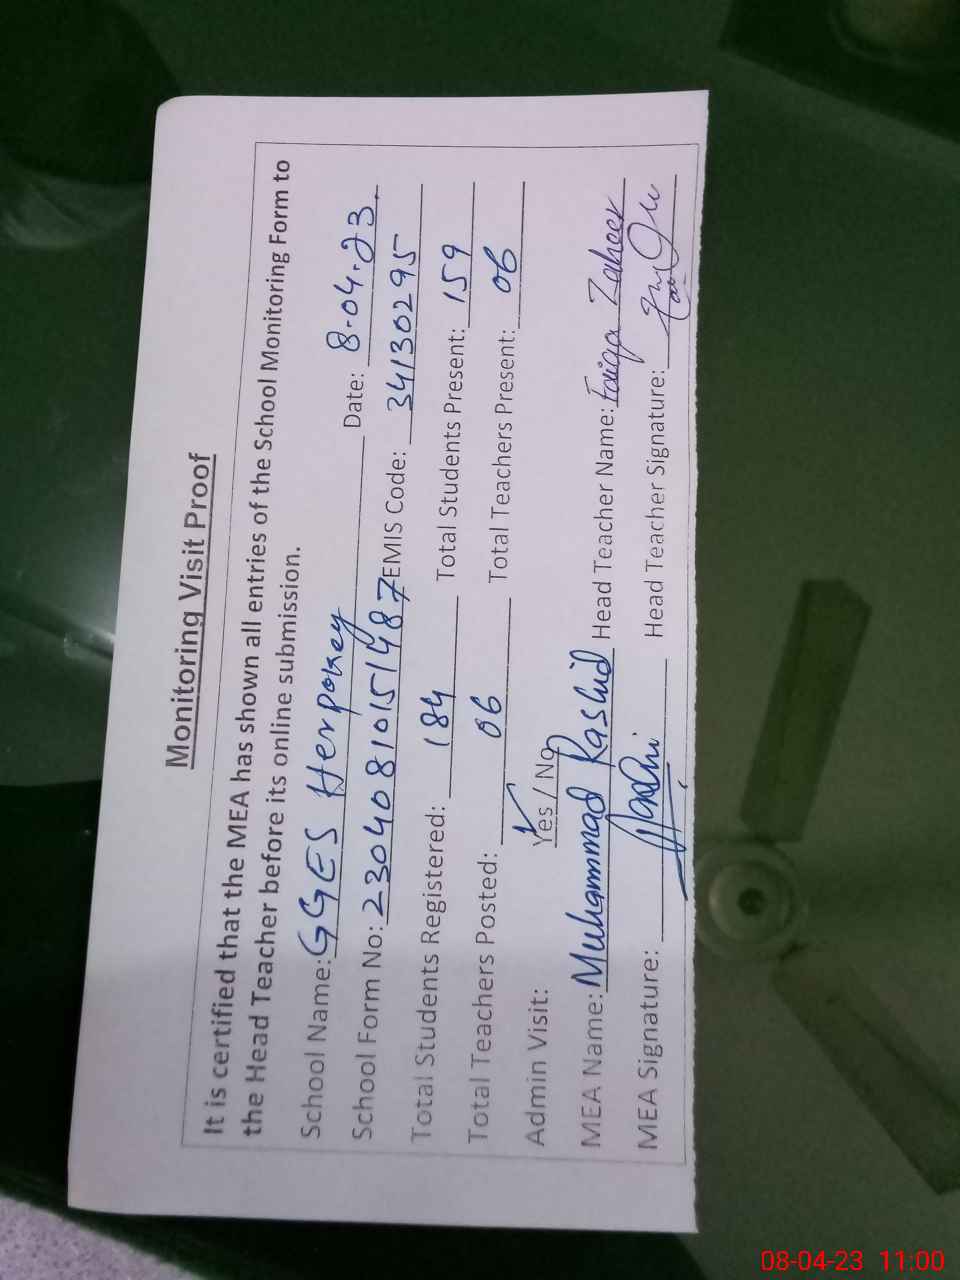 Monitoring Visit Proof
It is certified that the MEA has shown all entries of the School Monitoring Form to
the Head Teacher before its online submission.
School Name: GGES Herpokey Date: 8-04-23.
School Form No: 230408101515487 EMIS Code: 34130295
Total Students Registered: 184 Total Students Present: 159
Total Teachers Posted: 06 Total Teachers Present: 06
Admin Visit: Yes / No
MEA Name: Muhammad Rashid Head Teacher Name: Faiqa Zaheer
MEA Signature: Head Teacher Signature:
08-04-23 11:00